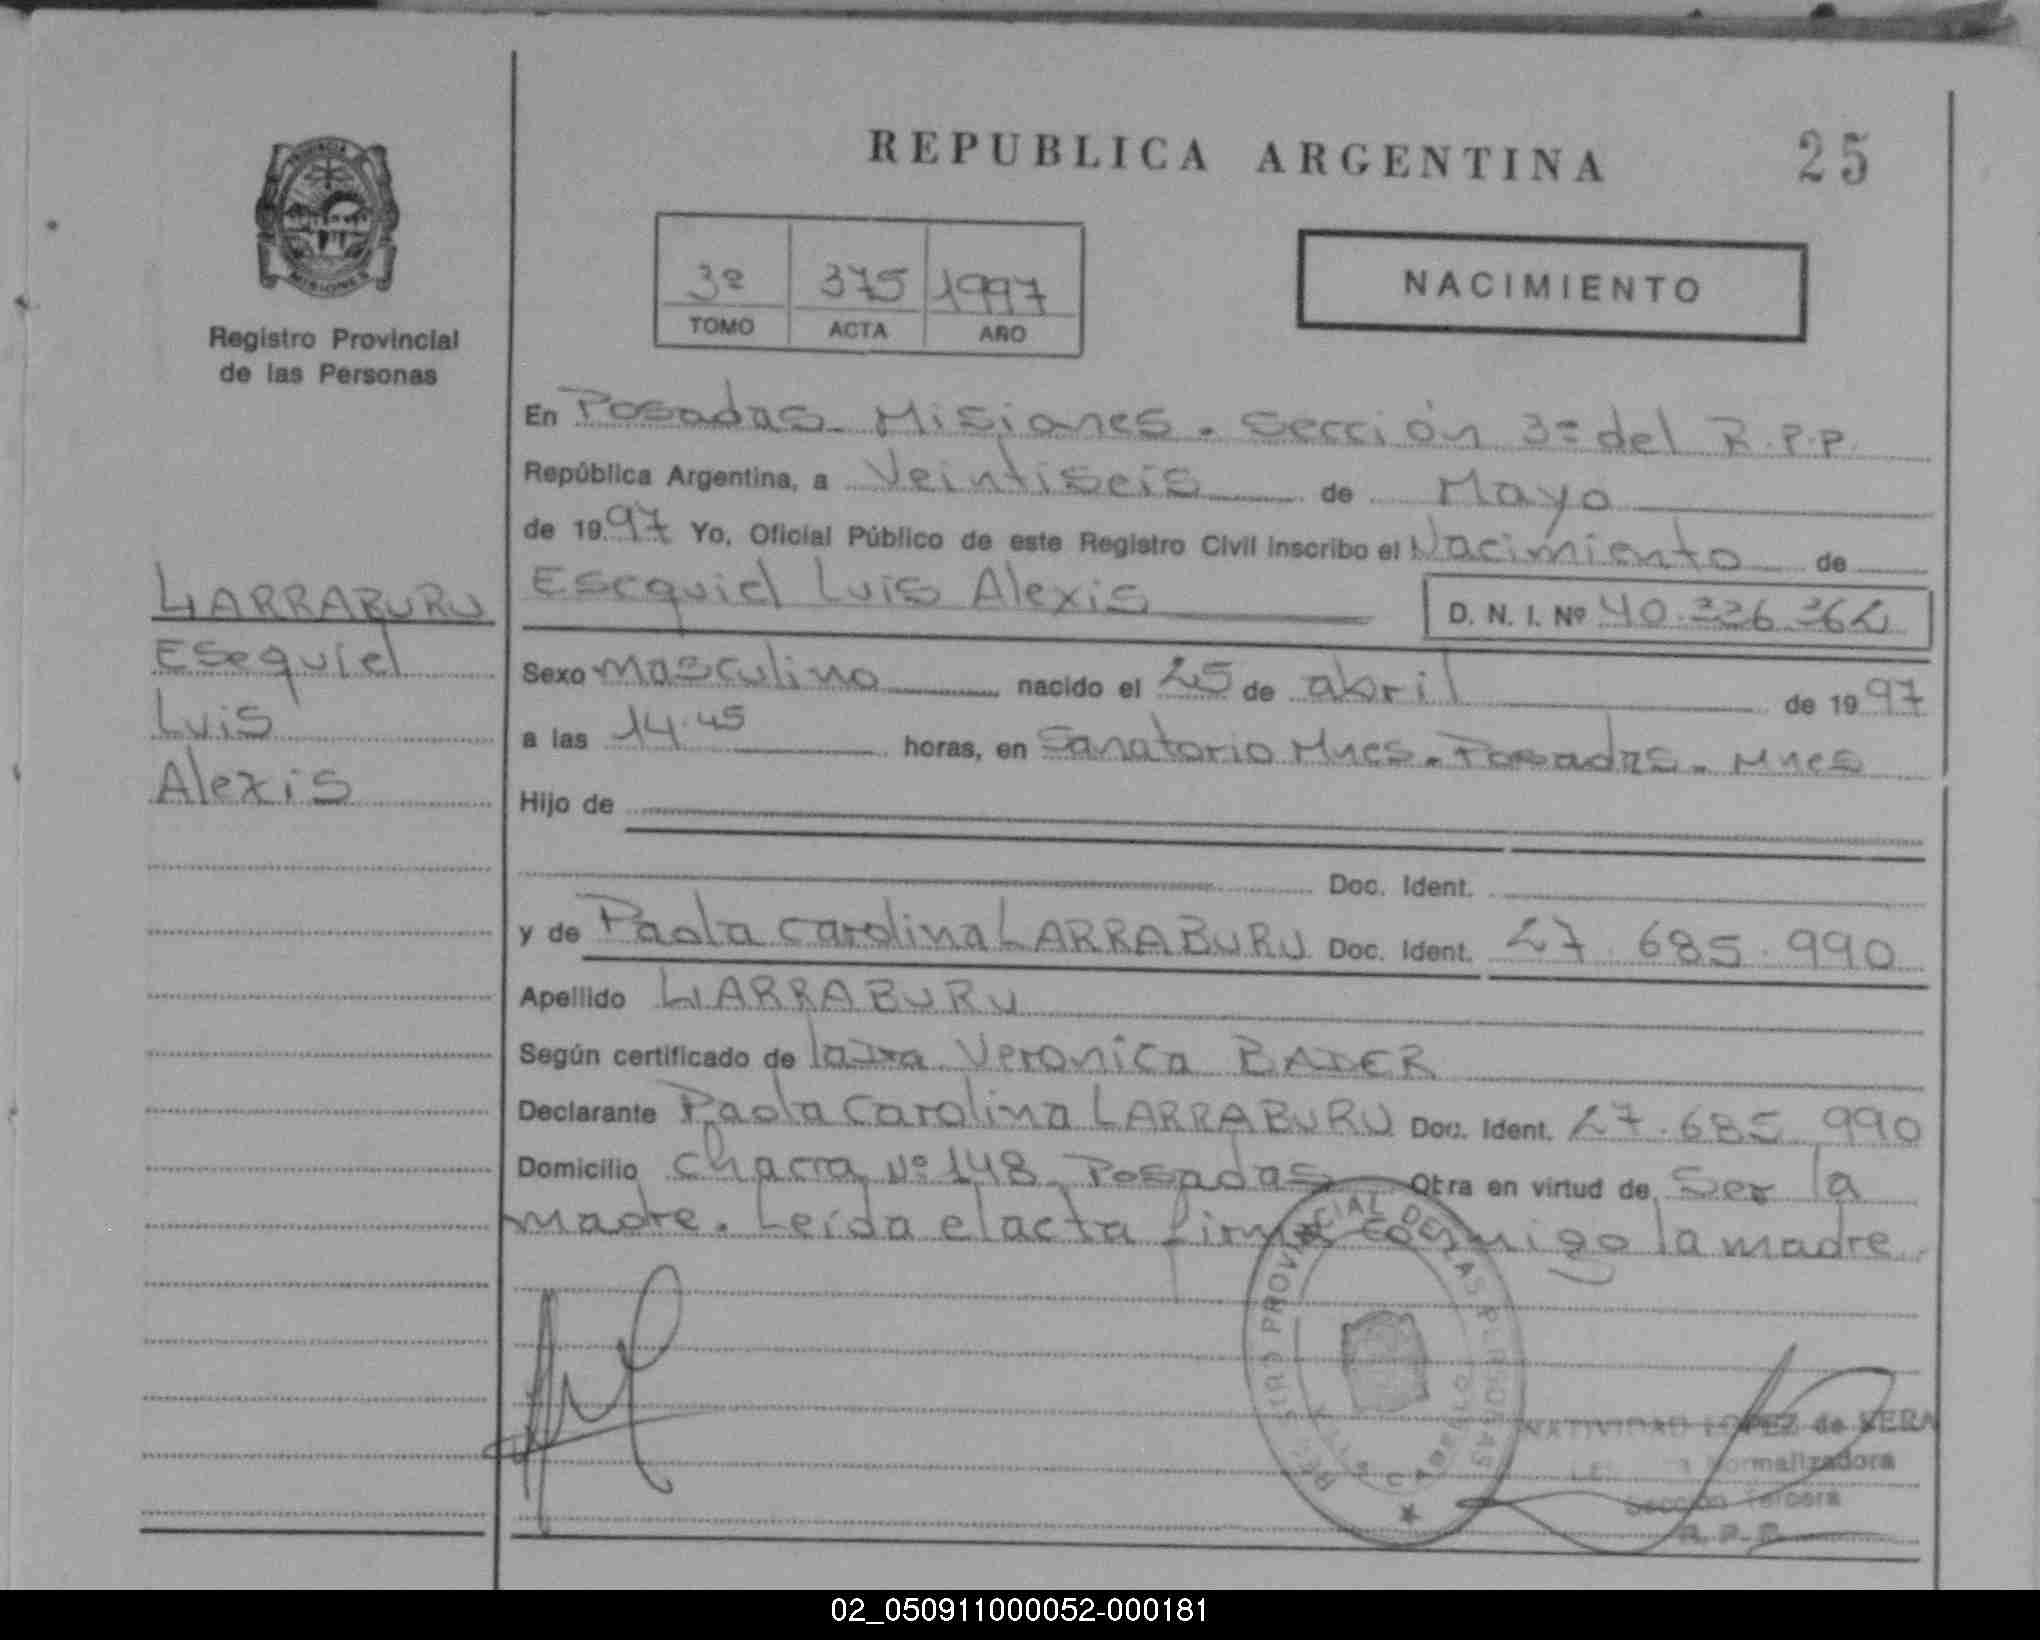 REPUBLICA ARGENTINA
25
PROVINCIA
MISIONES
Registro Provincial
de las Personas
3º 375 1997
TOMO ACTA AÑO
NACIMIENTO
LARRABURU
Esequiel
Luis
Alexis
En Posadas. Misiones. Sección 3ª del R.P.P.
República Argentina, a Veintiseis de Mayo
de 1997 Yo, Oficial Público de este Registro Civil inscribo el Nacimiento de
Esequiel Luis Alexis D. N. I. Nº 40.226.262
Sexo masculino nacido el 25 de abril de 1997
a las 14.45 horas, en Sanatorio Mnes. Posadas. Mnes
Hijo de
Doc. Ident.
y de Paola Carolina LARRABURU Doc. Ident. 27.685.990
Apellido LARRABURU
Según certificado de la Dra Veronica BADER
Declarante Paola Carolina LARRABURU Doc. Ident. 27.685.990
Domicilio Chacra Nº 148 Posadas Obra en virtud de Ser la
madre. Leída el acta firma conmigo la madre.
REGISTRO PROVINCIAL DE LAS PERSONAS
NATIVIDAD LOPEZ de
Normalizadora
Sección Tercera
R. P. P.
02_050911000052-000181